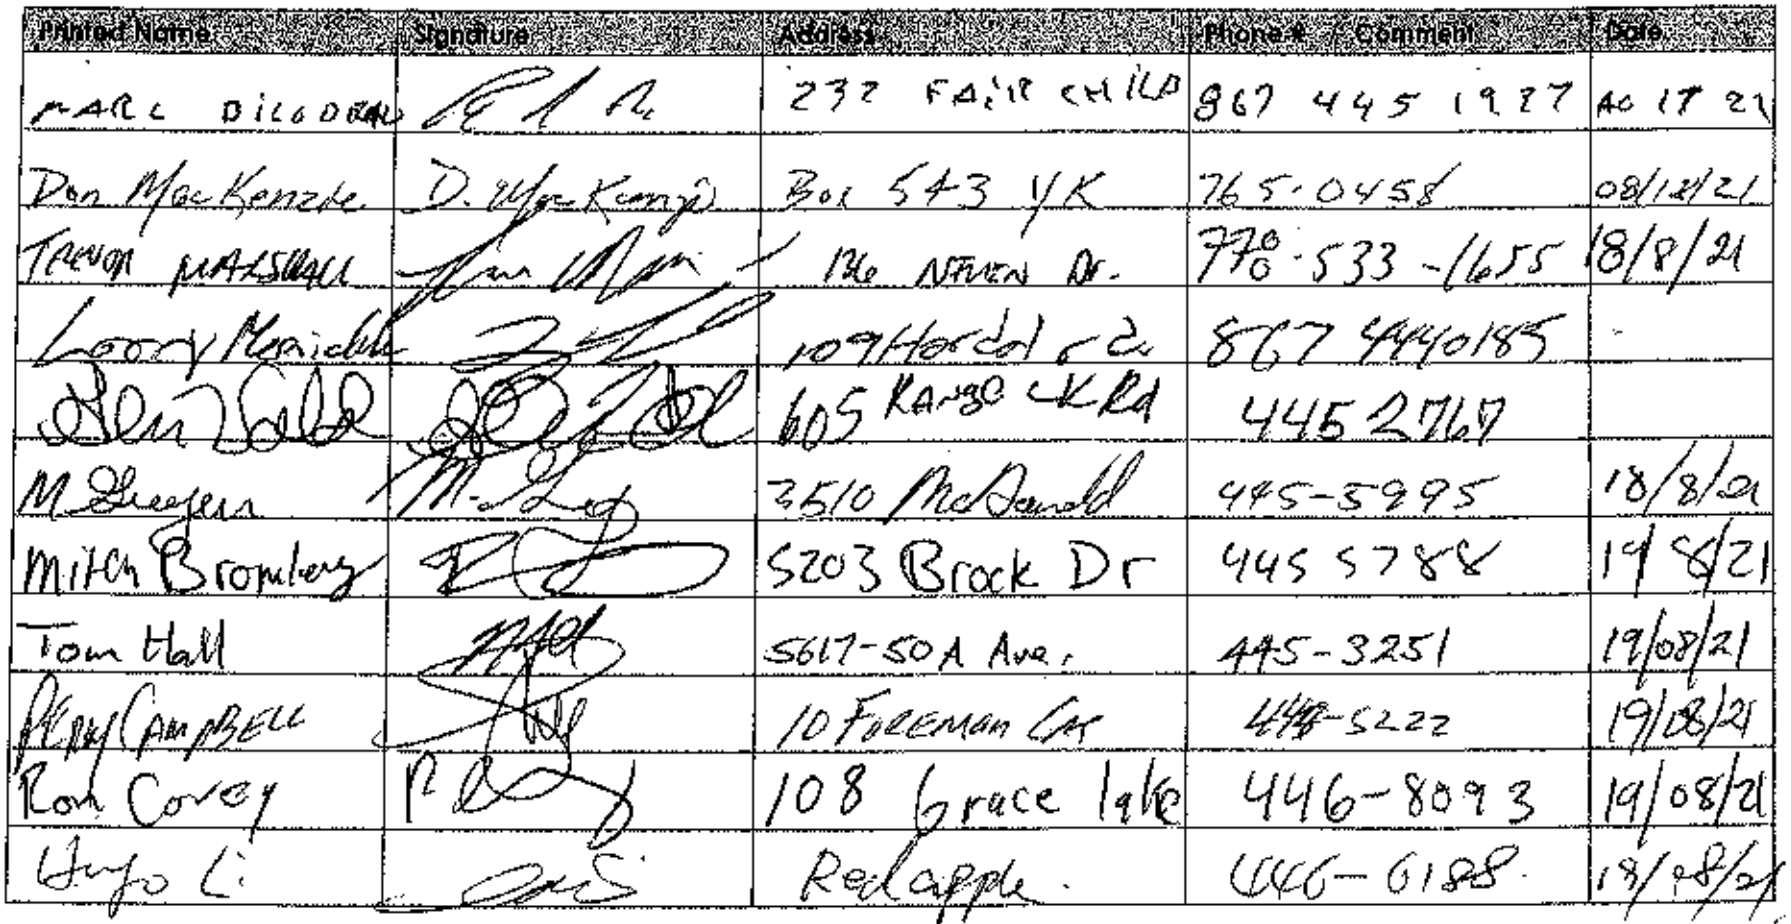 Printed Name Signature Address Phone # / Comment Date
MARC BILODEAU 232 FAIRCHILD 867 445 1927 AU 17 21
Don MacKenzie D. MacKenzie Box 543 YK 765-0458 08/18/21
TREVOR MARSHALL 136 NIVEN Dr. 770-533-1655 18/8/21
Larry 109 867 4440185
605 RANGE LK Rd 445 2767
M 3510 McDonald 445-5995 18/8/21
Mitch Bromley 5203 Brock Dr 445 5788 19 8/21
Tom Hall 5617-50A Ave. 445-3251 19/08/21
PERRY CAMPBELL 10 FOREMAN 5222 19/08/21
Ron Covey 108 Grace lake 446-8093 19/08/21
Hugo Li Red apple. 446-6188 19/08/21